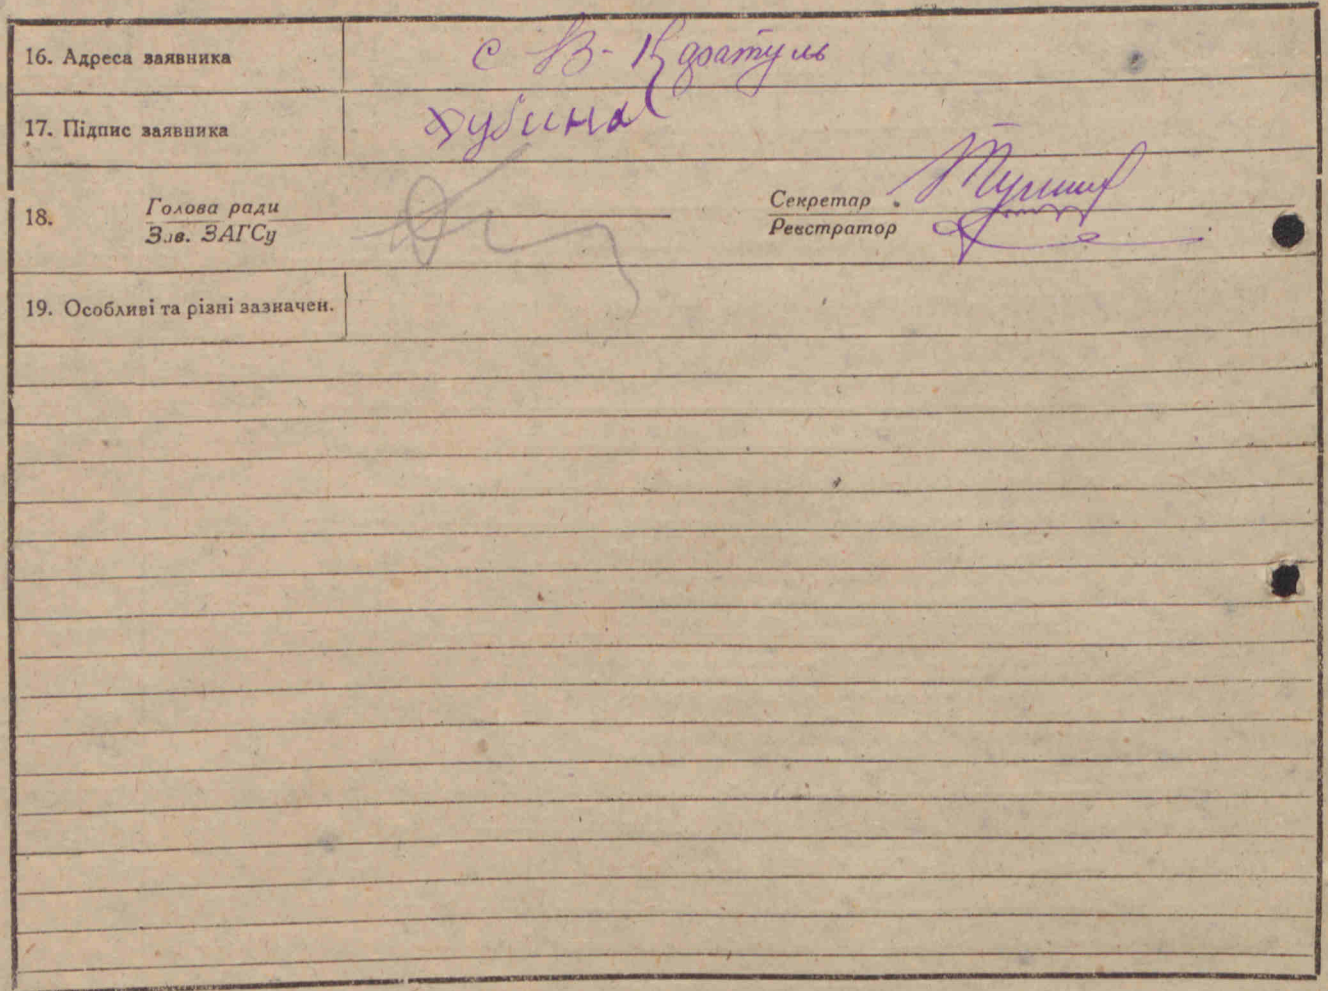 16. Адреса заявника с В-Каратуль
17. Підпис заявника Дубина
18. Голова ради Секретар
Зав. ЗАГСу Реєстратор
19. Особливі та різні зазначен.